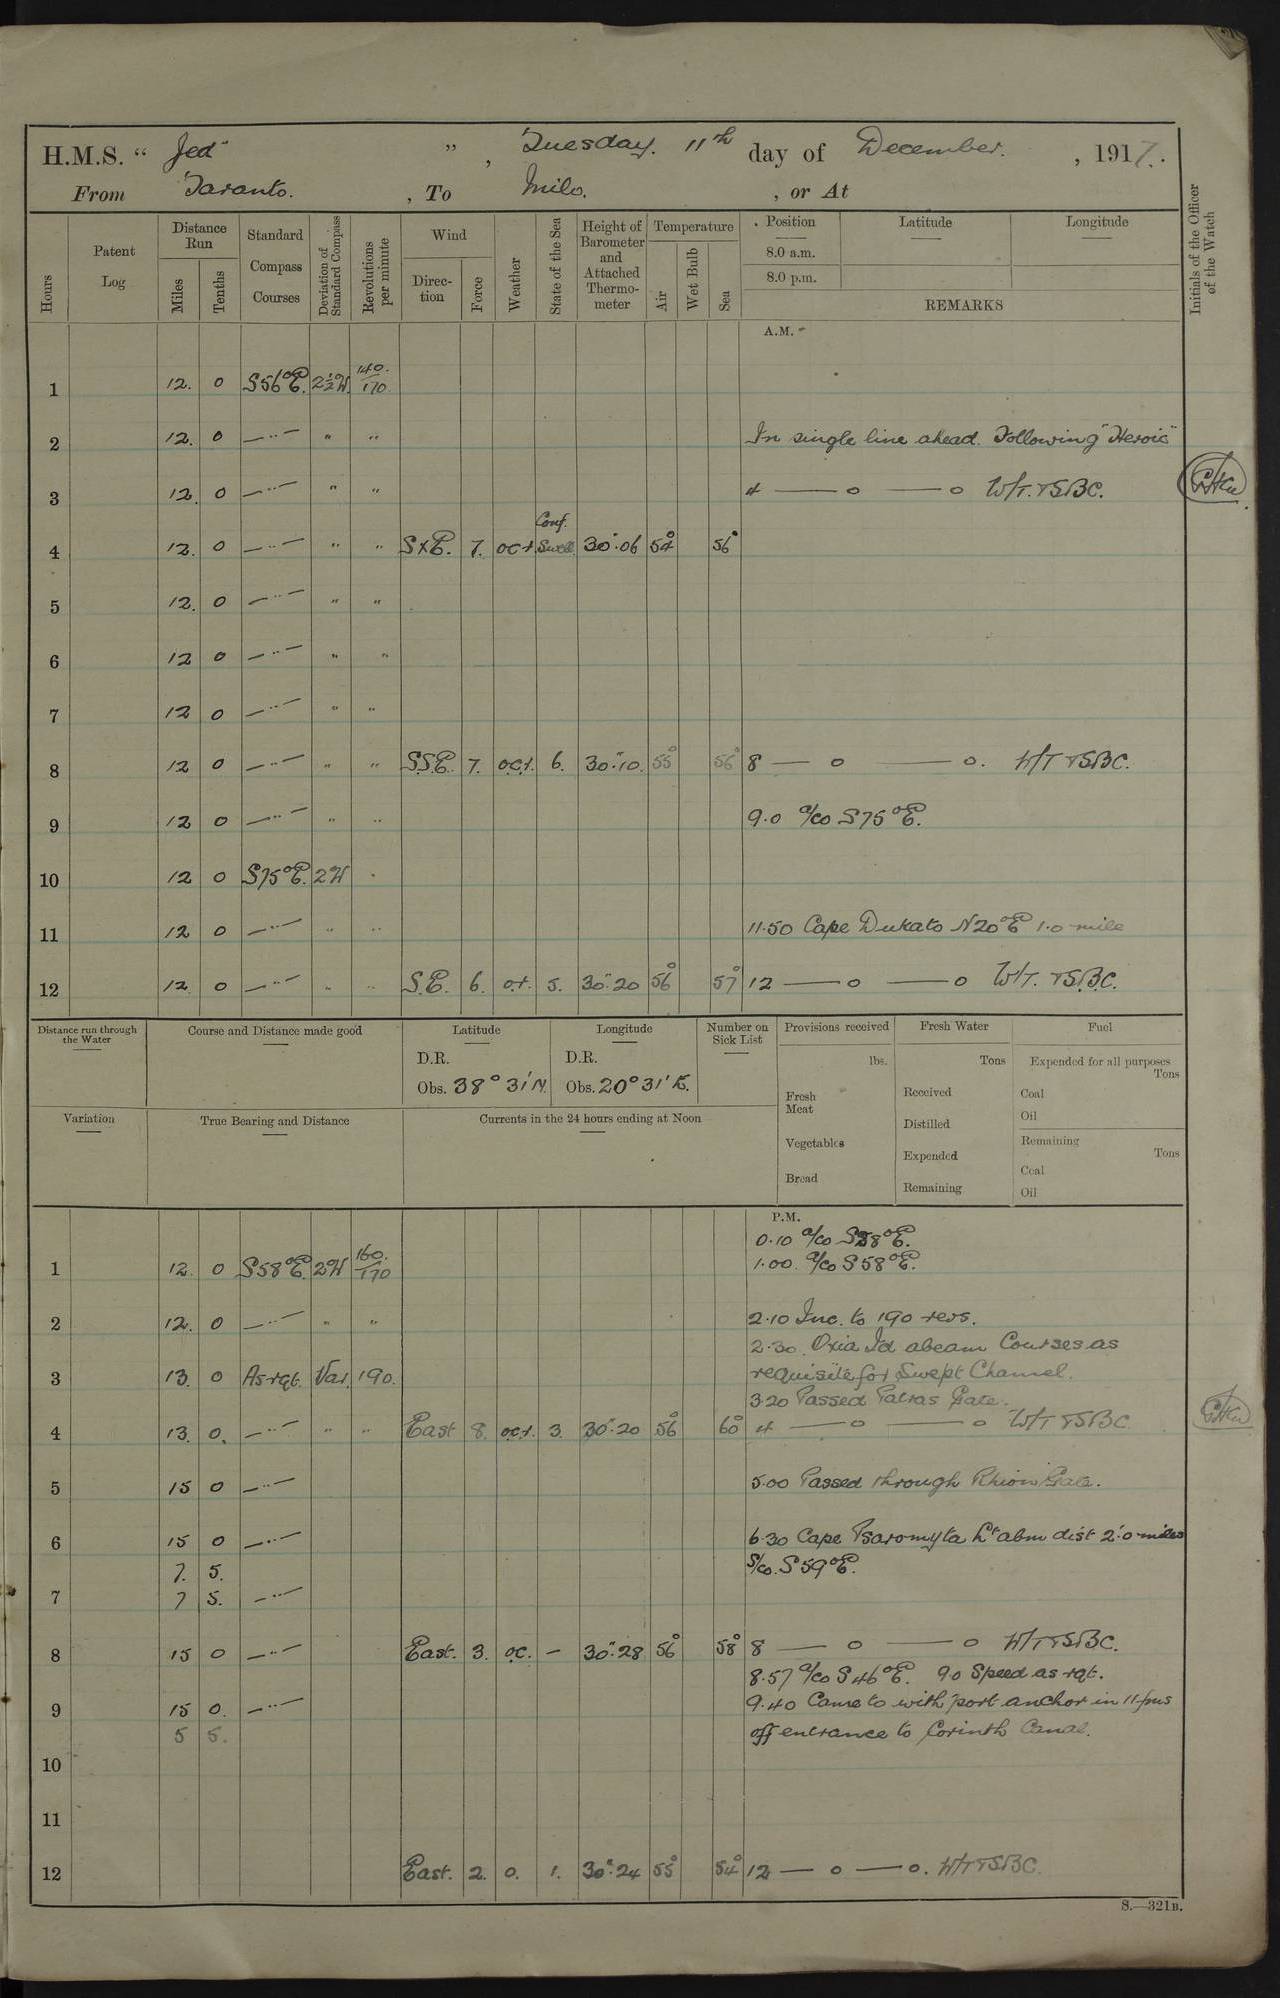 H.M.S. " Jed " , Tuesday. 11th day of December. , 1917.
From Taranto. , To Milo. , or At
Hours
Patent Log
Distance Run
Miles
Tenths
Standard Compass Courses
Deviation of Standard Compass
Revolutions per minute
Wind
Direction
Force
Weather
State of the Sea
Height of Barometer and Attached Thermometer
Temperature
Air
Wet Bulb
Sea
Position
8.0 a.m.
8.0 p.m.
Latitude
Longitude
REMARKS
Initials of the Officer of the Watch
A.M.
1 12. 0 S56°E. 2½W. 140./170.
2 12. 0 —··— " " In single line ahead. Following "Heroic"
3 12. 0 —··— " " 4 — o — o W/T. TSBC.
4 12. 0 —··— " " SxE. 7. oct Conf. Swell. 30".06 54° 56°
5 12. 0 —··— " "
6 12 0 —··— " "
7 12 0 —··— " "
8 12 0 —··— " " S.S.E. 7. o.c.t. 6. 30".10. 55° 56° 8 — o — o. W/T TSBC.
9 12 0 —··— " " 9.0 a/co S75°E.
10 12 0 S75°E. 2W "
11 12 0 —··— " " 11.50 Cape Dukato N20°E 1.0 mile
12 12. 0 —··— " " S.E. 6. o.t. 5. 30".20 56° 57° 12 — o — o W/T. TS.B.C.
Distance run through the Water
Course and Distance made good
Latitude
D.R.
Obs. 38° 31'N.
Longitude
D.R.
Obs. 20° 31' E.
Number on Sick List
Provisions received
lbs.
Fresh Meat
Vegetables
Bread
Fresh Water
Tons
Received
Distilled
Expended
Remaining
Fuel
Expended for all purposes
Tons
Coal
Oil
Remaining
Tons
Coal
Oil
Variation
True Bearing and Distance
Currents in the 24 hours ending at Noon
P.M.
0.10 a/co S28°E.
1 12. 0 S58°E. 2W 160./170 1.00. a/co S58°E.
2 12. 0 —··— " " 2.10 Inc. to 190 revs.
2.30. Oxia Id abeam Courses as
3 13. 0 As rqt. Var. 190. requisite for Swept Channel.
3.20 Passed Patras Gate.
4 13. 0. —··— " " East 8. o.c.t. 3. 30".20 56° 60° 4 — o — o W/T TSBC
5 15 0 —··— 5.00 Passed through Rhion Gate.
6 15 0 —··— 6.30 Cape Psaromyta Lt abm dist 2'.0 miles
7. 5. S/co. S 59°E.
7 7 5. —··—
8 15 0 —··— East. 3. o.c. – 30".28 56° 58° 8 — o — o W/T TSBC.
8.57 a/co S 46°E. 9.0 Speed as rqt.
9 15 0. —··— 9.40 Came to with port anchor in 11 fms
5 5. off entrance to Corinth Canal.
10
11
12 East. 2. o. 1. 30".24 55° 54° 12 — o — o. W/T TSBC.
S.—321B.